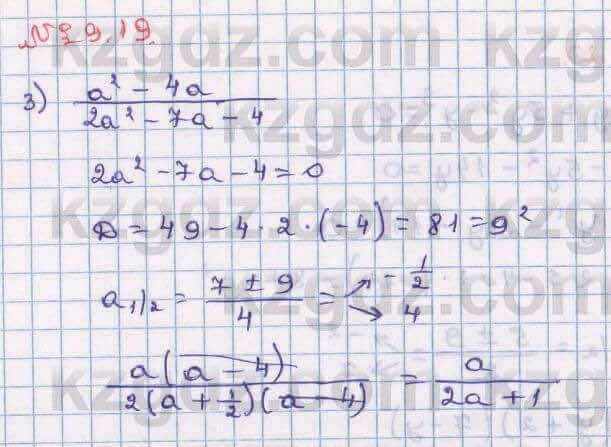 №29.19.
3) (a² - 4a)/(2a² - 7a - 4)
2a² - 7a - 4 = 0
D = 49 - 4 · 2 · (-4) = 81 = 9²
a₁/₂ = (7 ± 9)/4 = ↗ -1/2 ↘ 4
a(a - 4)/(2(a + 1/2)(a - 4)) = a/(2a + 1)